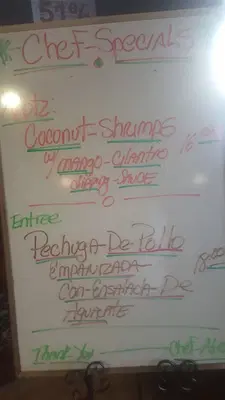 Chef-Specials
Coconut-Shrimps
w/ mango-Cilantro
Entree
Pechuga-De-Pollo
empanizada
Con-Ensalada-De
Aguacate
Thank You